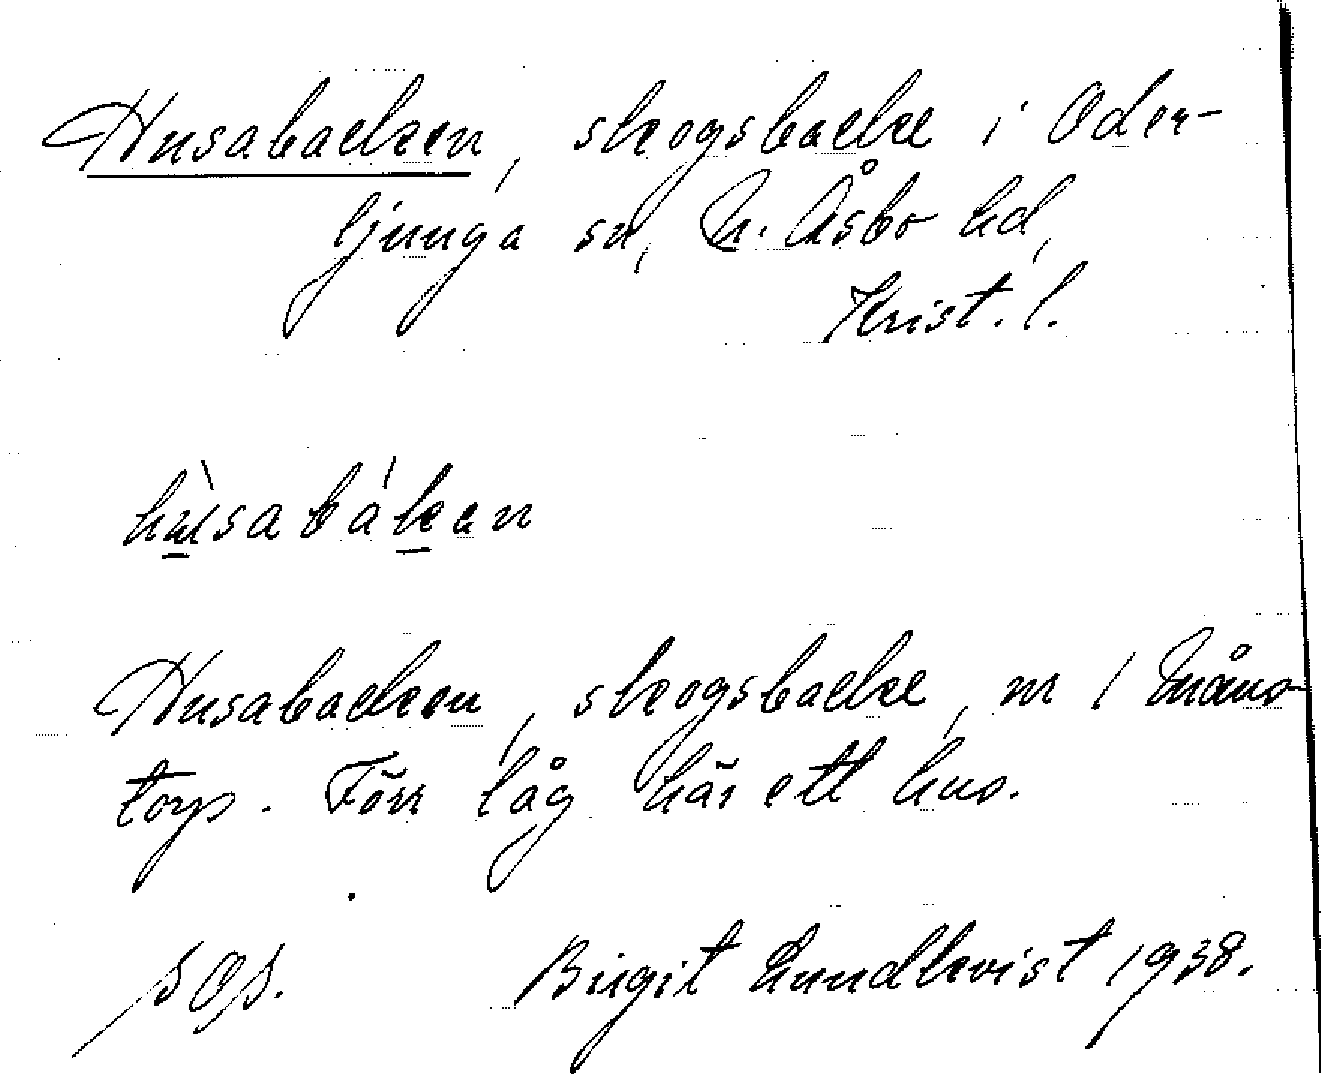 Husabacken, skogsbacke i Oder-
ljunga sn, N. Åsbo hd,
Krist. l.
hùsabákan
Husabacken, skogsbacke, nr 1 Måns-
torp. Förr låg här ett hus.
Birgit Lundkvist 1938.